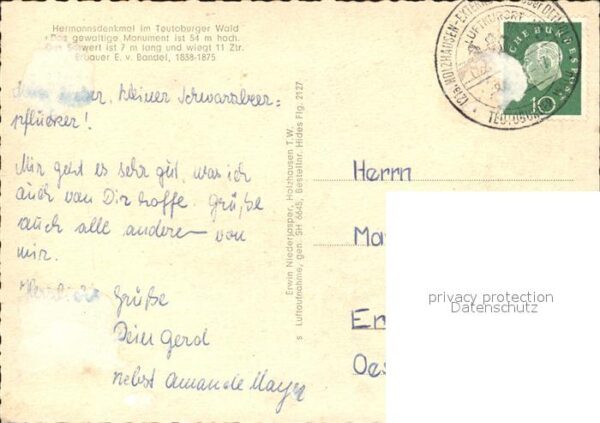 Hermannsdenkmal im Teutoburger Wald
Das gewaltige Monument ist 54 m hoch.
Das Schwert ist 7 m lang und wiegt 11 Ztr.
Erbauer E. v. Bandel, 1838-1875
kleiner Schwarzbeer-
pflücker!
Mir geht es sehr gut, was ich
auch von Dir hoffe. Grüße
auch alle anderen von
mir.
Grüße
Dein Gerd
nebst Amanda Mayer
Erwin Niederjasper, Holzhausen T.W.
s Luftaufnahme, gen. SH 6645, Bestellnr. Hides Flg. 2127
HOLZHAUSEN-EXTERNSTEINE
LUFTKURORT
10
Herrn
Ma
Er
Oes
privacy protection
Datenschutz